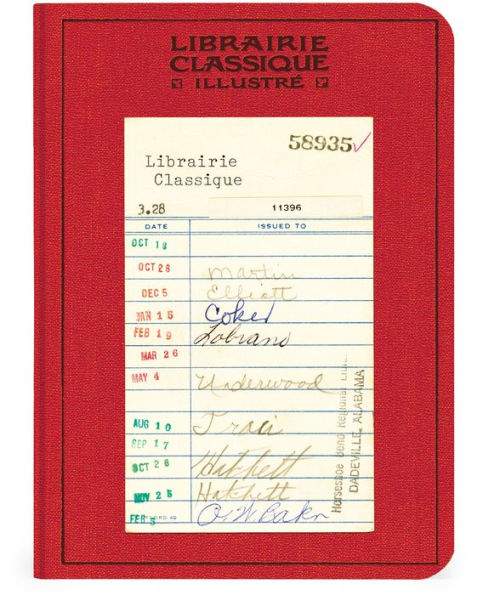 LIBRAIRIE
CLASSIQUE
ILLUSTRÉ
58935✓
Librairie
Classique
3.28 11396
DATE ISSUED TO
OCT 18
OCT 28 Martin
DEC 5 Elliott
JAN 15 Coker
FEB 19 Lobrano
MAR 26
MAY 4 Underwood
AUG 10 Traci
SEP 17
OCT 26 Hatchett
NOV 25 Hatchett
FEB 5 O.W. Baker
Horseshoe Bend Regional
DADEVILLE, ALABAMA